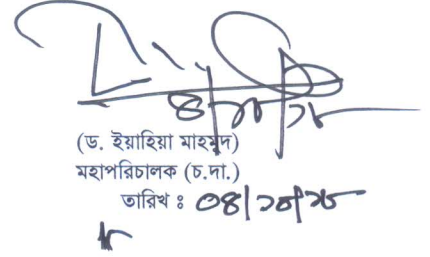 (ড. ইয়াহিয়া মাহমুদ)
মহাপরিচালক (চ.দা.)
তারিখ ঃ ০৪/১০/১৮